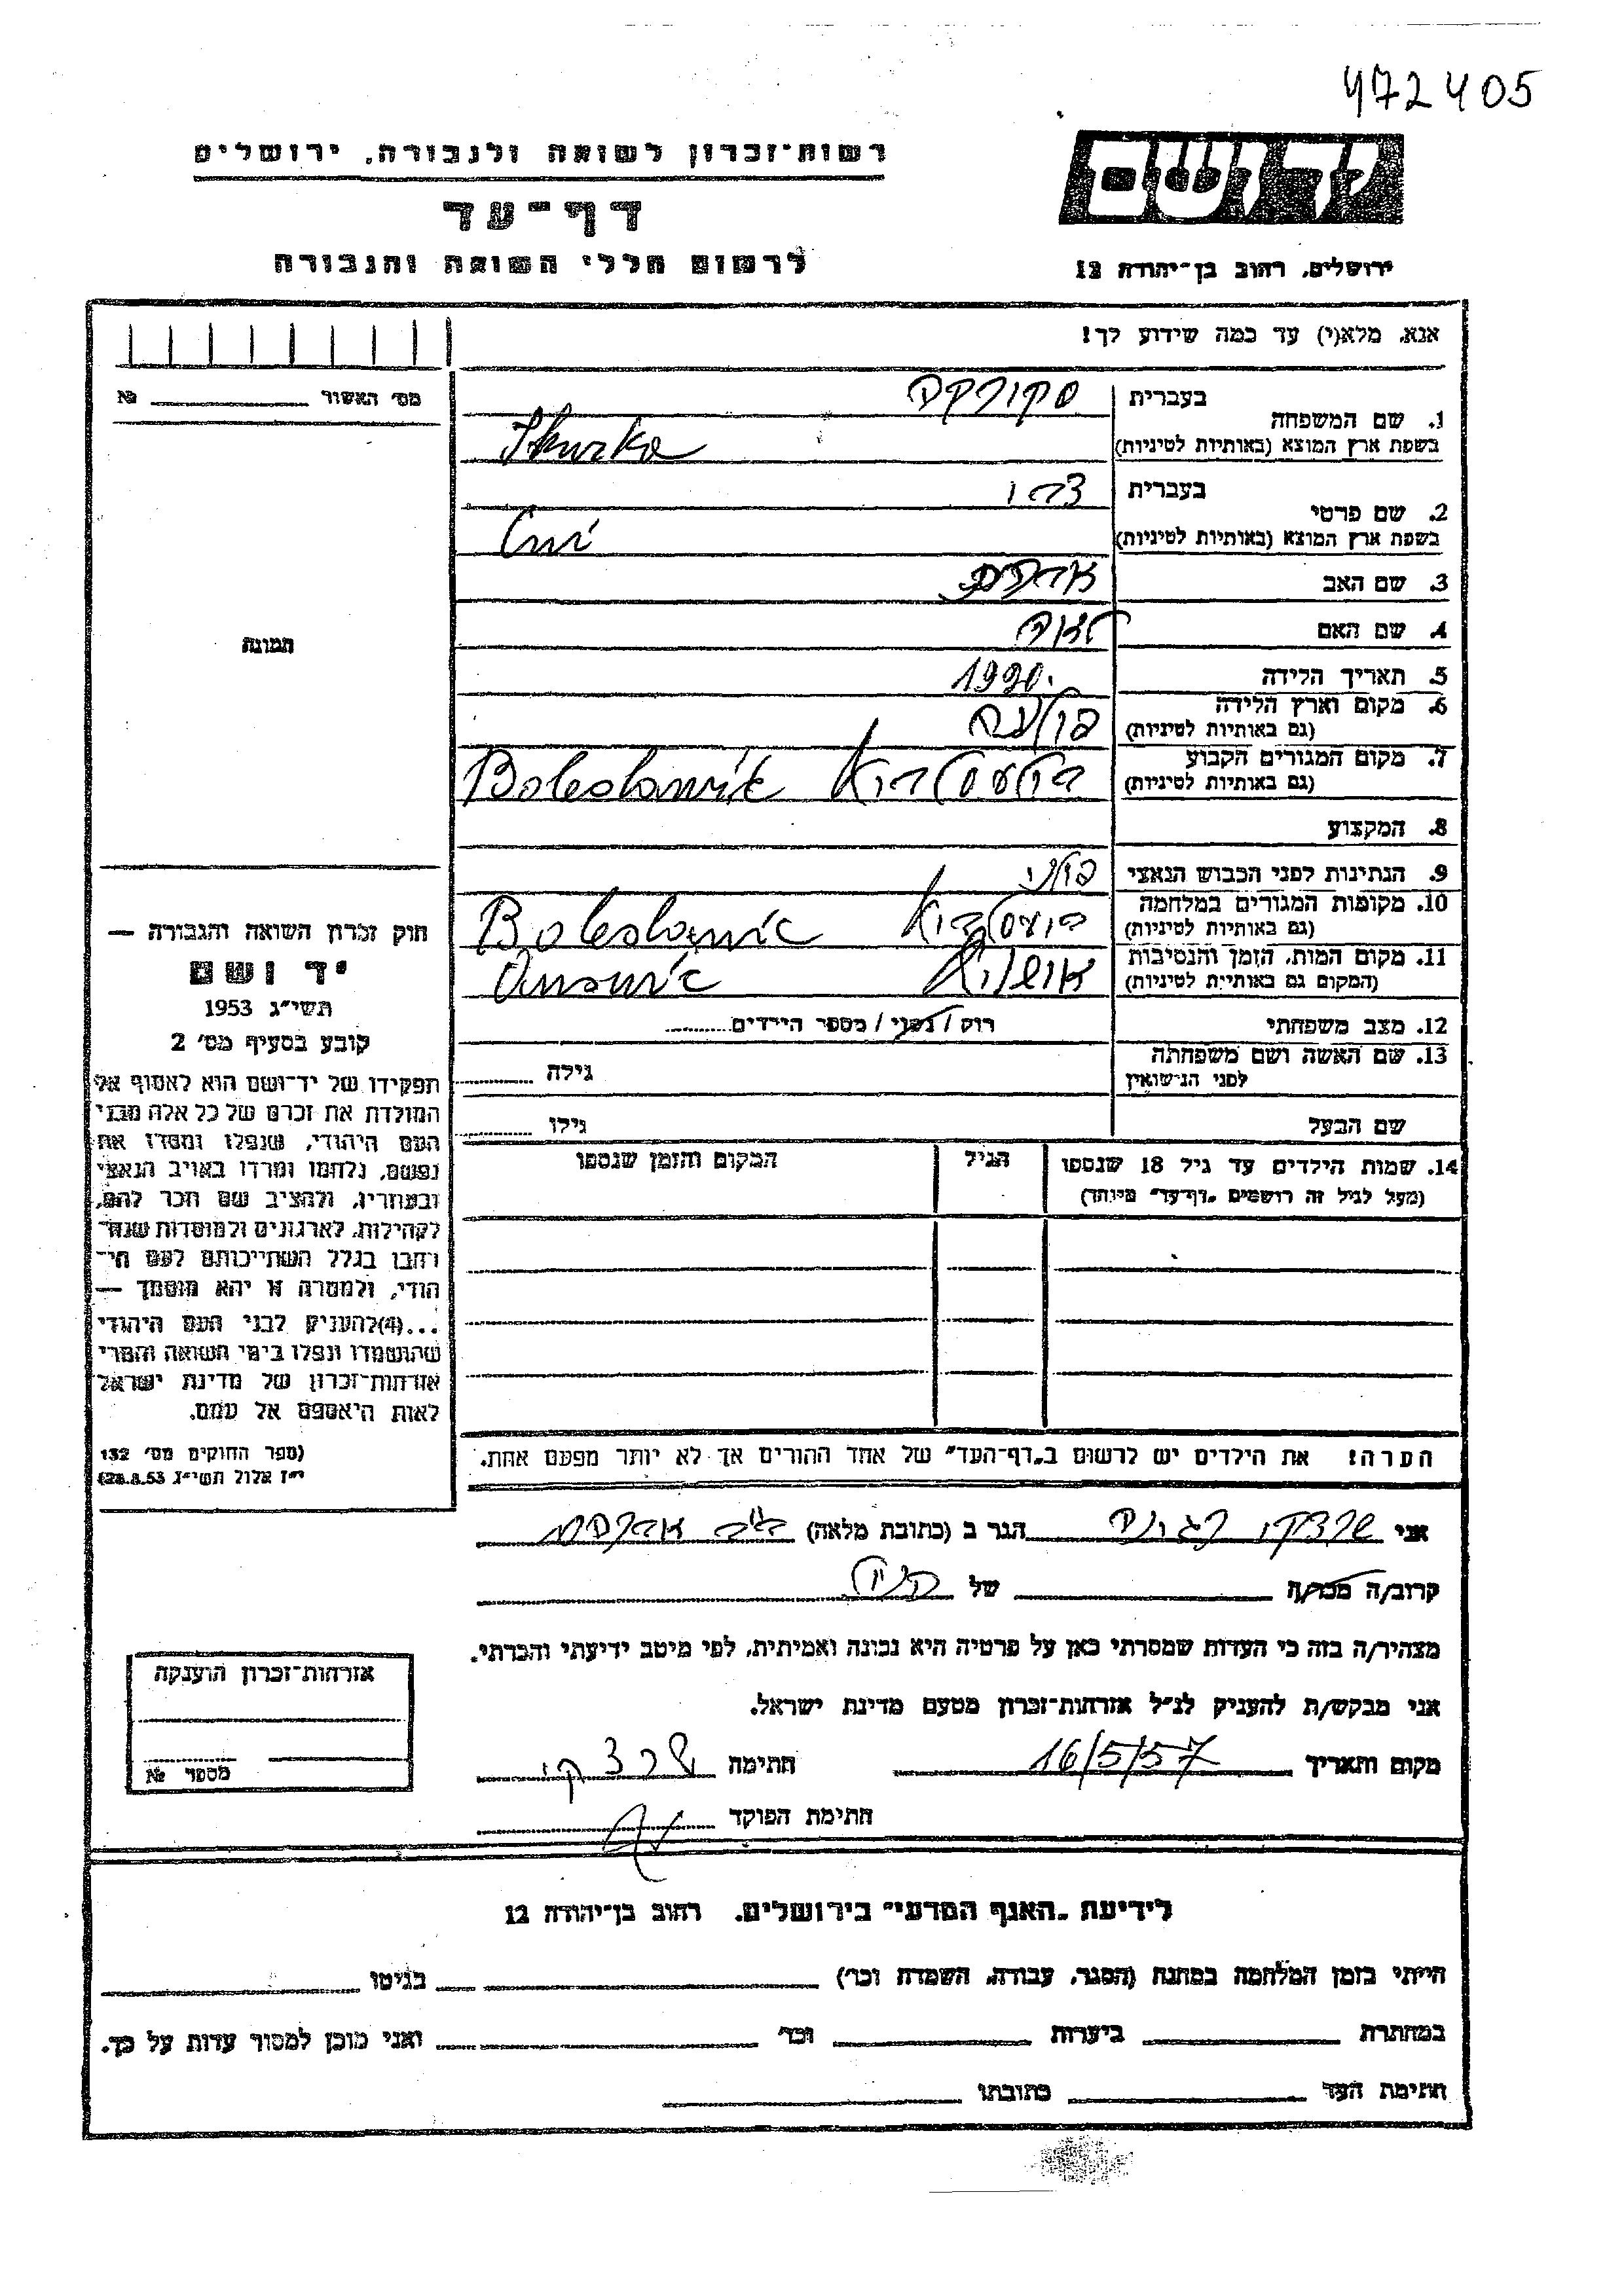 472405
רשות-זכרון לשואה ולגבורה, ירושלים
דף-עד
לרשום חללי השואה והגבורה
יד ושם
ירושלים, רחוב בן-יהודה 12
אנא, מלא(י) עד כמה שידוע לך!
מס' האשור № 
1. שם המשפחה בעברית סקורקה
בשפת ארץ המוצא (באותיות לטיניות) Skurka
2. שם פרטי בעברית
בשפת ארץ המוצא (באותיות לטיניות)
3. שם האב אברהם
4. שם האם לאה
5. תאריך הלידה 1920
6. מקום וארץ הלידה פולניה
(גם באותיות לטיניות)
7. מקום המגורים הקבוע Boleslawiec
(גם באותיות לטיניות)
8. המקצוע
9. הנתינות לפני הכבוש הנאצי פולני
10. מקומות המגורים במלחמה Boleslawic
(גם באותיות לטיניות)
11. מקום המות, הזמן והנסיבות
(המקום גם באותיות לטיניות)
12. מצב משפחתי רוק / נשוי / מספר הילדים
13. שם האשה ושם משפחתה גילה
לפני הנישואין
שם הבעל גילו
14. שמות הילדים עד גיל 18 שנספו הגיל המקום והזמן שנספו
(מעל לגיל זה רושמים "דף-עד" מיוחד)
הערה! את הילדים יש לרשום ב"דף-העד" של אחד ההורים אך לא יותר מפעם אחת.
תמונה
חוק זכרון השואה והגבורה —
יד ושם
תשי"ג 1953
קובע בסעיף מס' 2
תפקידו של יד-ושם הוא לאסוף אל
המולדת את זכרם של כל אלה מבני
העם היהודי, שנפלו ומסרו את
נפשם, נלחמו ומרדו באויב הנאצי
ובעוזריו, ולהציב שם וזכר להם,
לקהילות, לארגונים ולמוסדות שנח-
רבו בגלל השתייכותם לעם הי-
הודי, ולמטרה זו יהא מוסמך —
...(4) להעניק לבני העם היהודי
שהושמדו ונפלו בימי השואה והמרי
אזרחות-זכרון של מדינת ישראל
לאות היאספם אל עמם.
(ספר החוקים מס' 132
י"ז אלול תשי"ג 28.8.53)
אני הגר ב (כתובת מלאה)
קרוב/ה מכר/ה של
מצהיר/ה בזה כי העדות שמסרתי כאן על פרטיה היא נכונה ואמיתית, לפי מיטב ידיעתי והכרתי.
אני מבקש/ת להעניק לנ"ל אזרחות-זכרון מטעם מדינת ישראל.
מקום ותאריך 16/5/57 חתימה
חתימת הפוקד
אזרחות-זכרון הוענקה
מספר №
לידיעת "האגף המדעי" בירושלים, רחוב בן-יהודה 12
הייתי בזמן המלחמה במחנה (הסגר, עבודה, השמדה וכו') בגיטו
במחתרת ביערות וכו' ואני מוכן למסור עדות על כך.
חתימת העד כתובתו